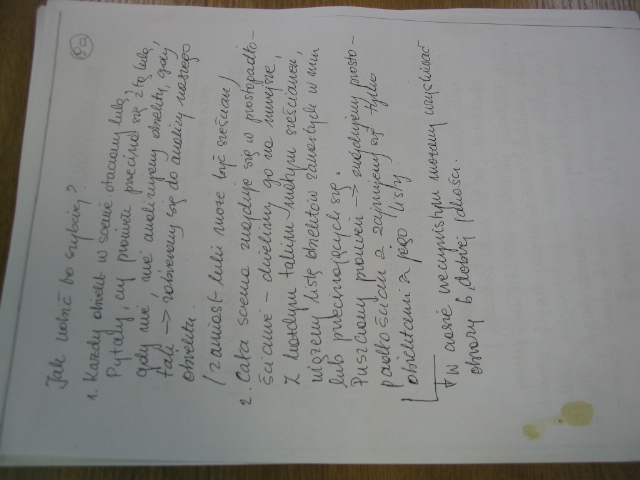 50
Jak robić to szybciej?
1. Każdy obiekt w scenie otaczamy kulą,
Pytamy, czy promień przecina się z tą kulą,
gdy nie, nie analizujemy obiektu, gdy
tak → zabieramy się do analizy naszego
obiektu.
(zamiast kuli może być sześcian)
2. Cała scena znajduje się w prostopadło-
ścianie – dzielimy go na mniejsze,
z każdym takim małym sześcianem,
wiążemy listę obiektów zawartych w nim
lub przecinających się.
Puszczamy promień → znajdujemy prosto-
padłościan a zajmujemy się tylko
obiektami z jego listy.
W czasie rzeczywistym możemy uzyskiwać
obrazy b. dobrej jakości.